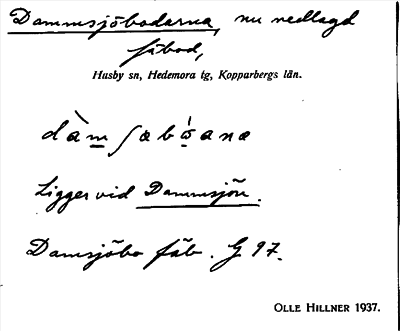 Dammsjöbodarna, nu nedlagd
fäbod,
Husby sn, Hedemora tg, Kopparbergs län.
dàm ʃæbóana
Ligger vid Dammsjön.
Damsjöbo fäb. G 97.
OLLE HILLNER 1937.